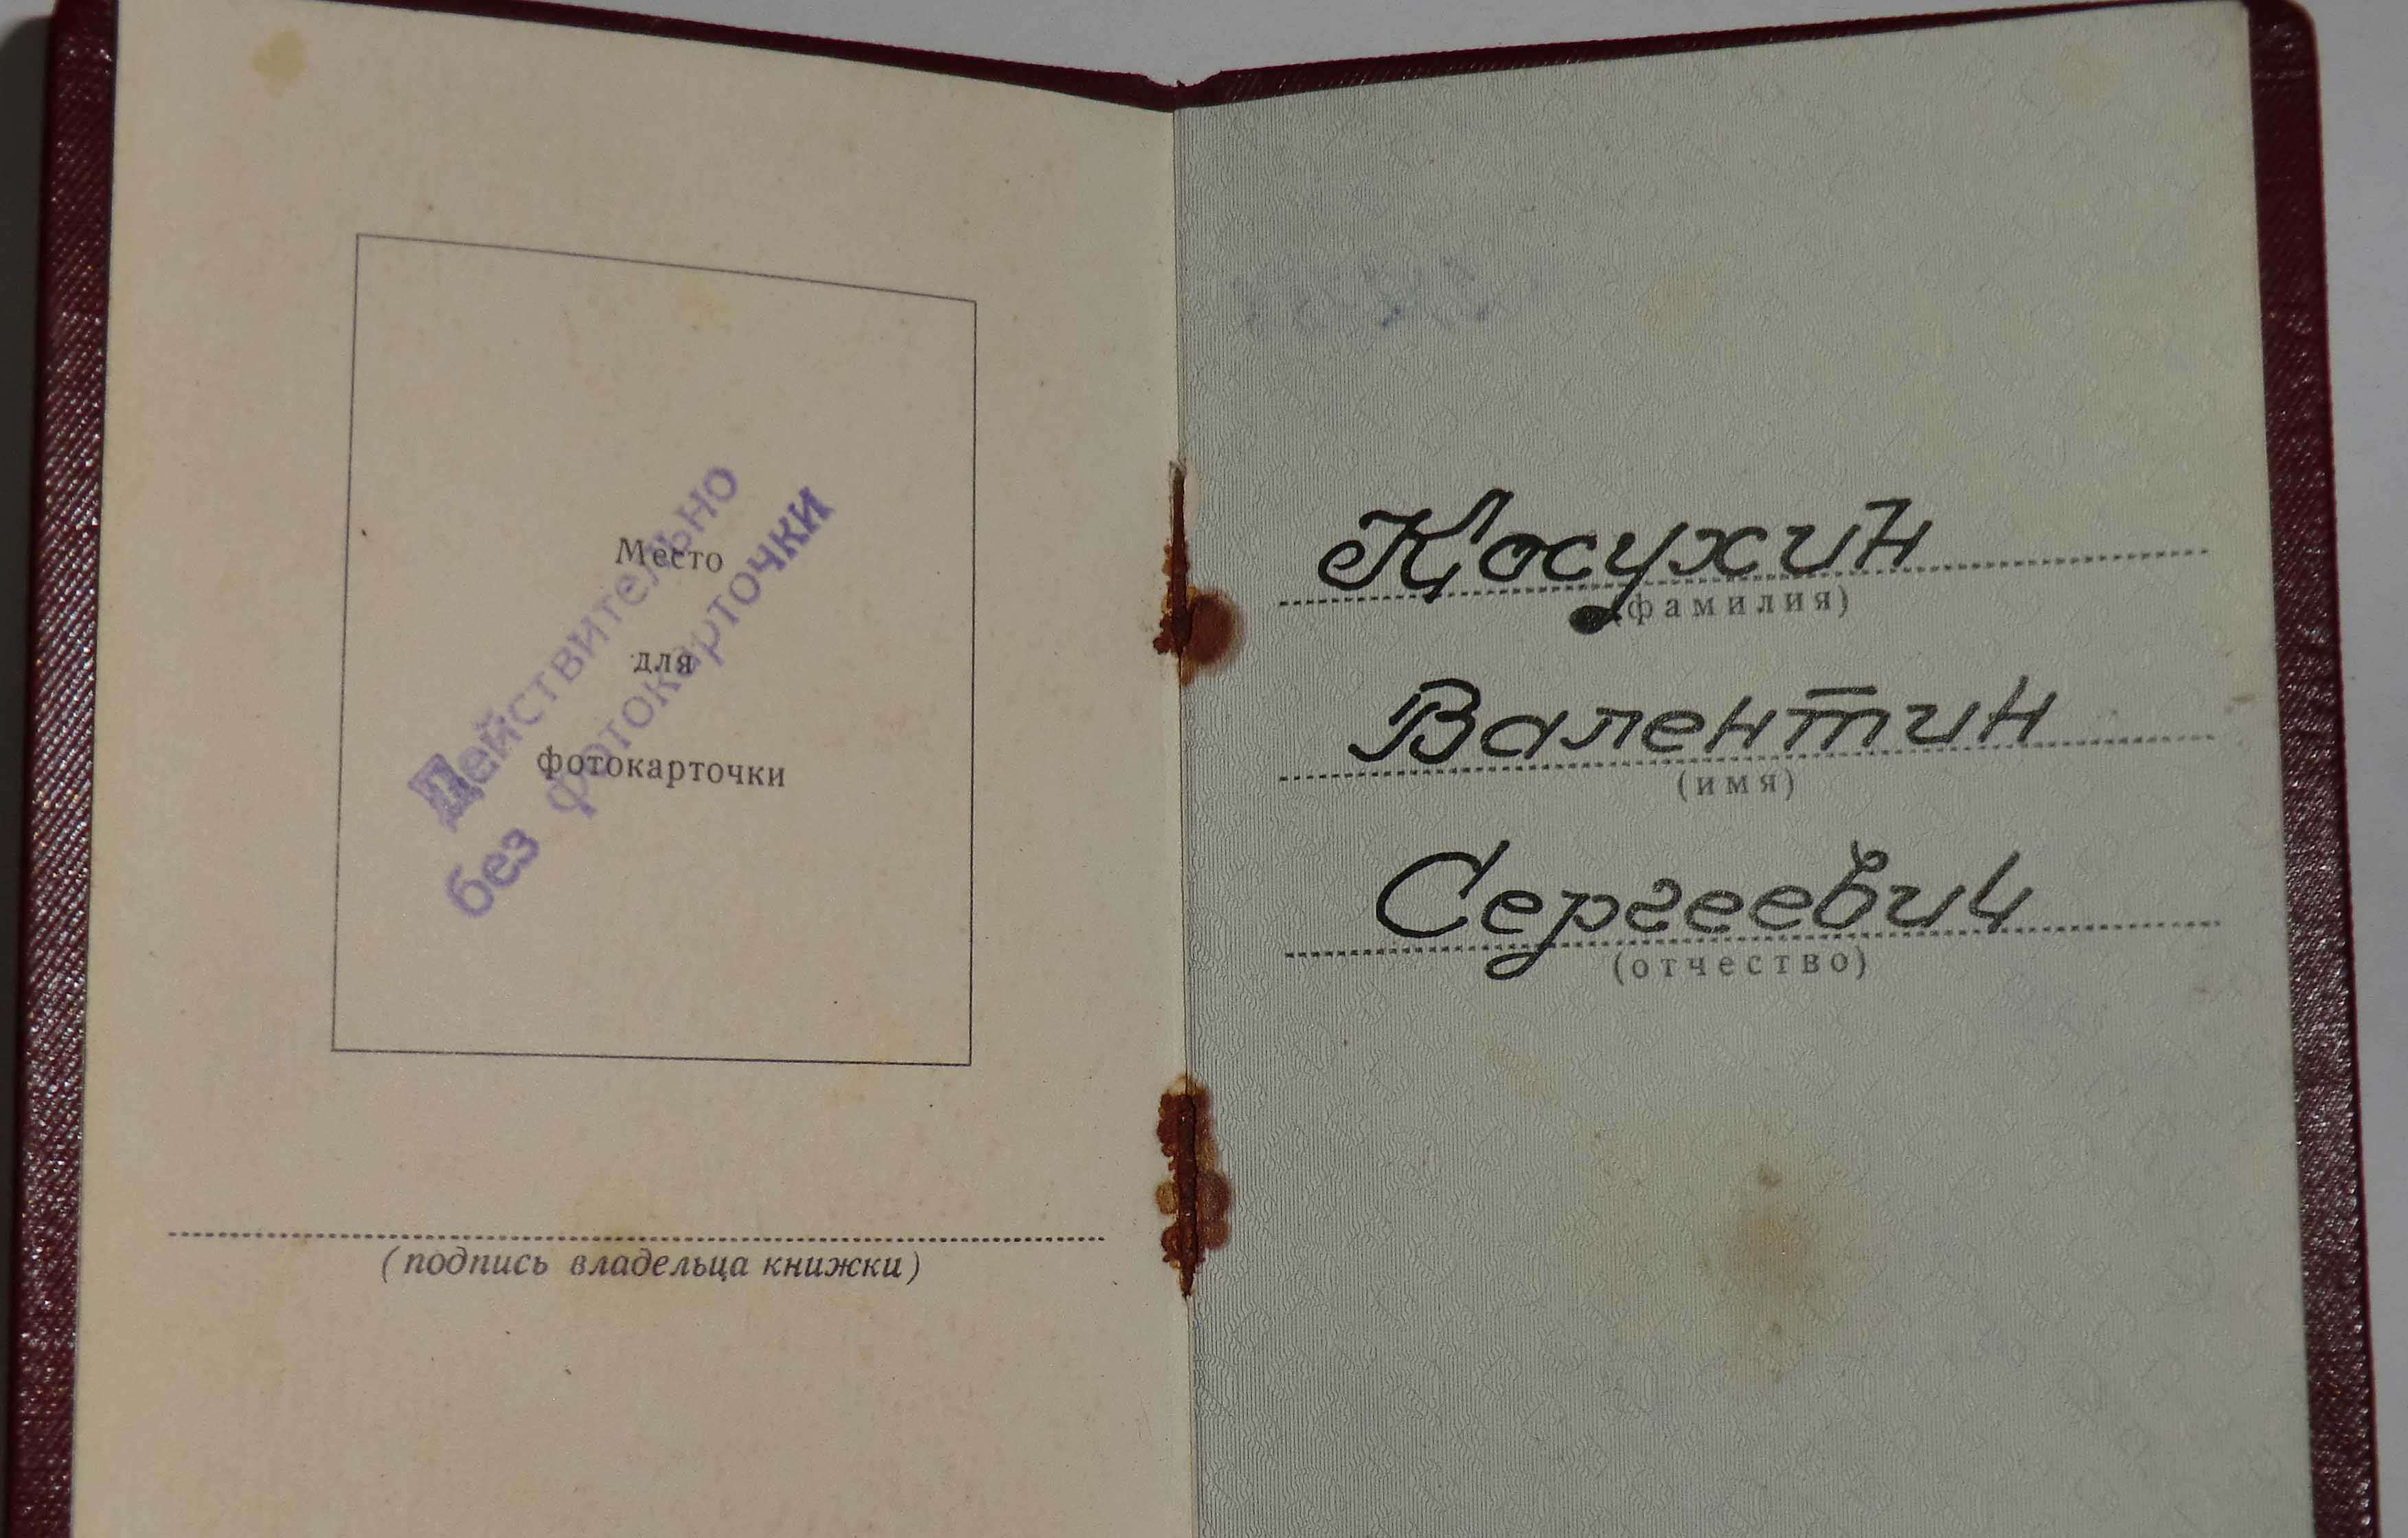 Место
для
фотокарточки
Действительно
без фотокарточки
(подпись владельца книжки)
Косухин
(фамилия)
Валентин
(имя)
Сергеевич
(отчество)